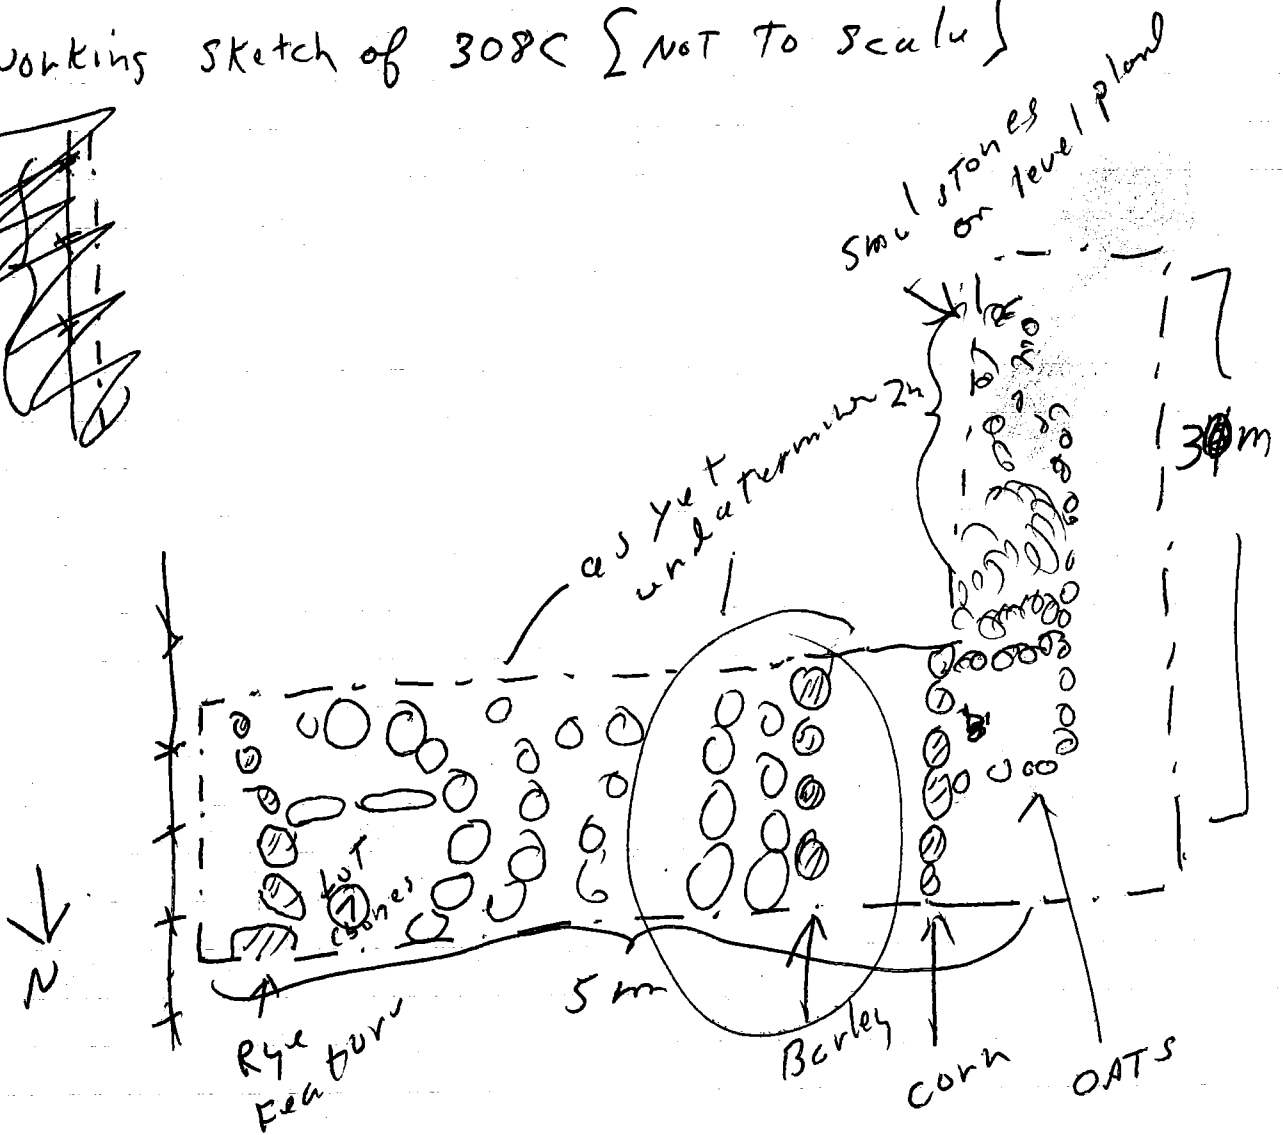 working sketch of 308C {NOT To scale}
small stones
or level pland
as yet
undetermin
2m
3m
LOT
1
(bones
N
5 m
Rye
Feature
Barley
corn
OATS